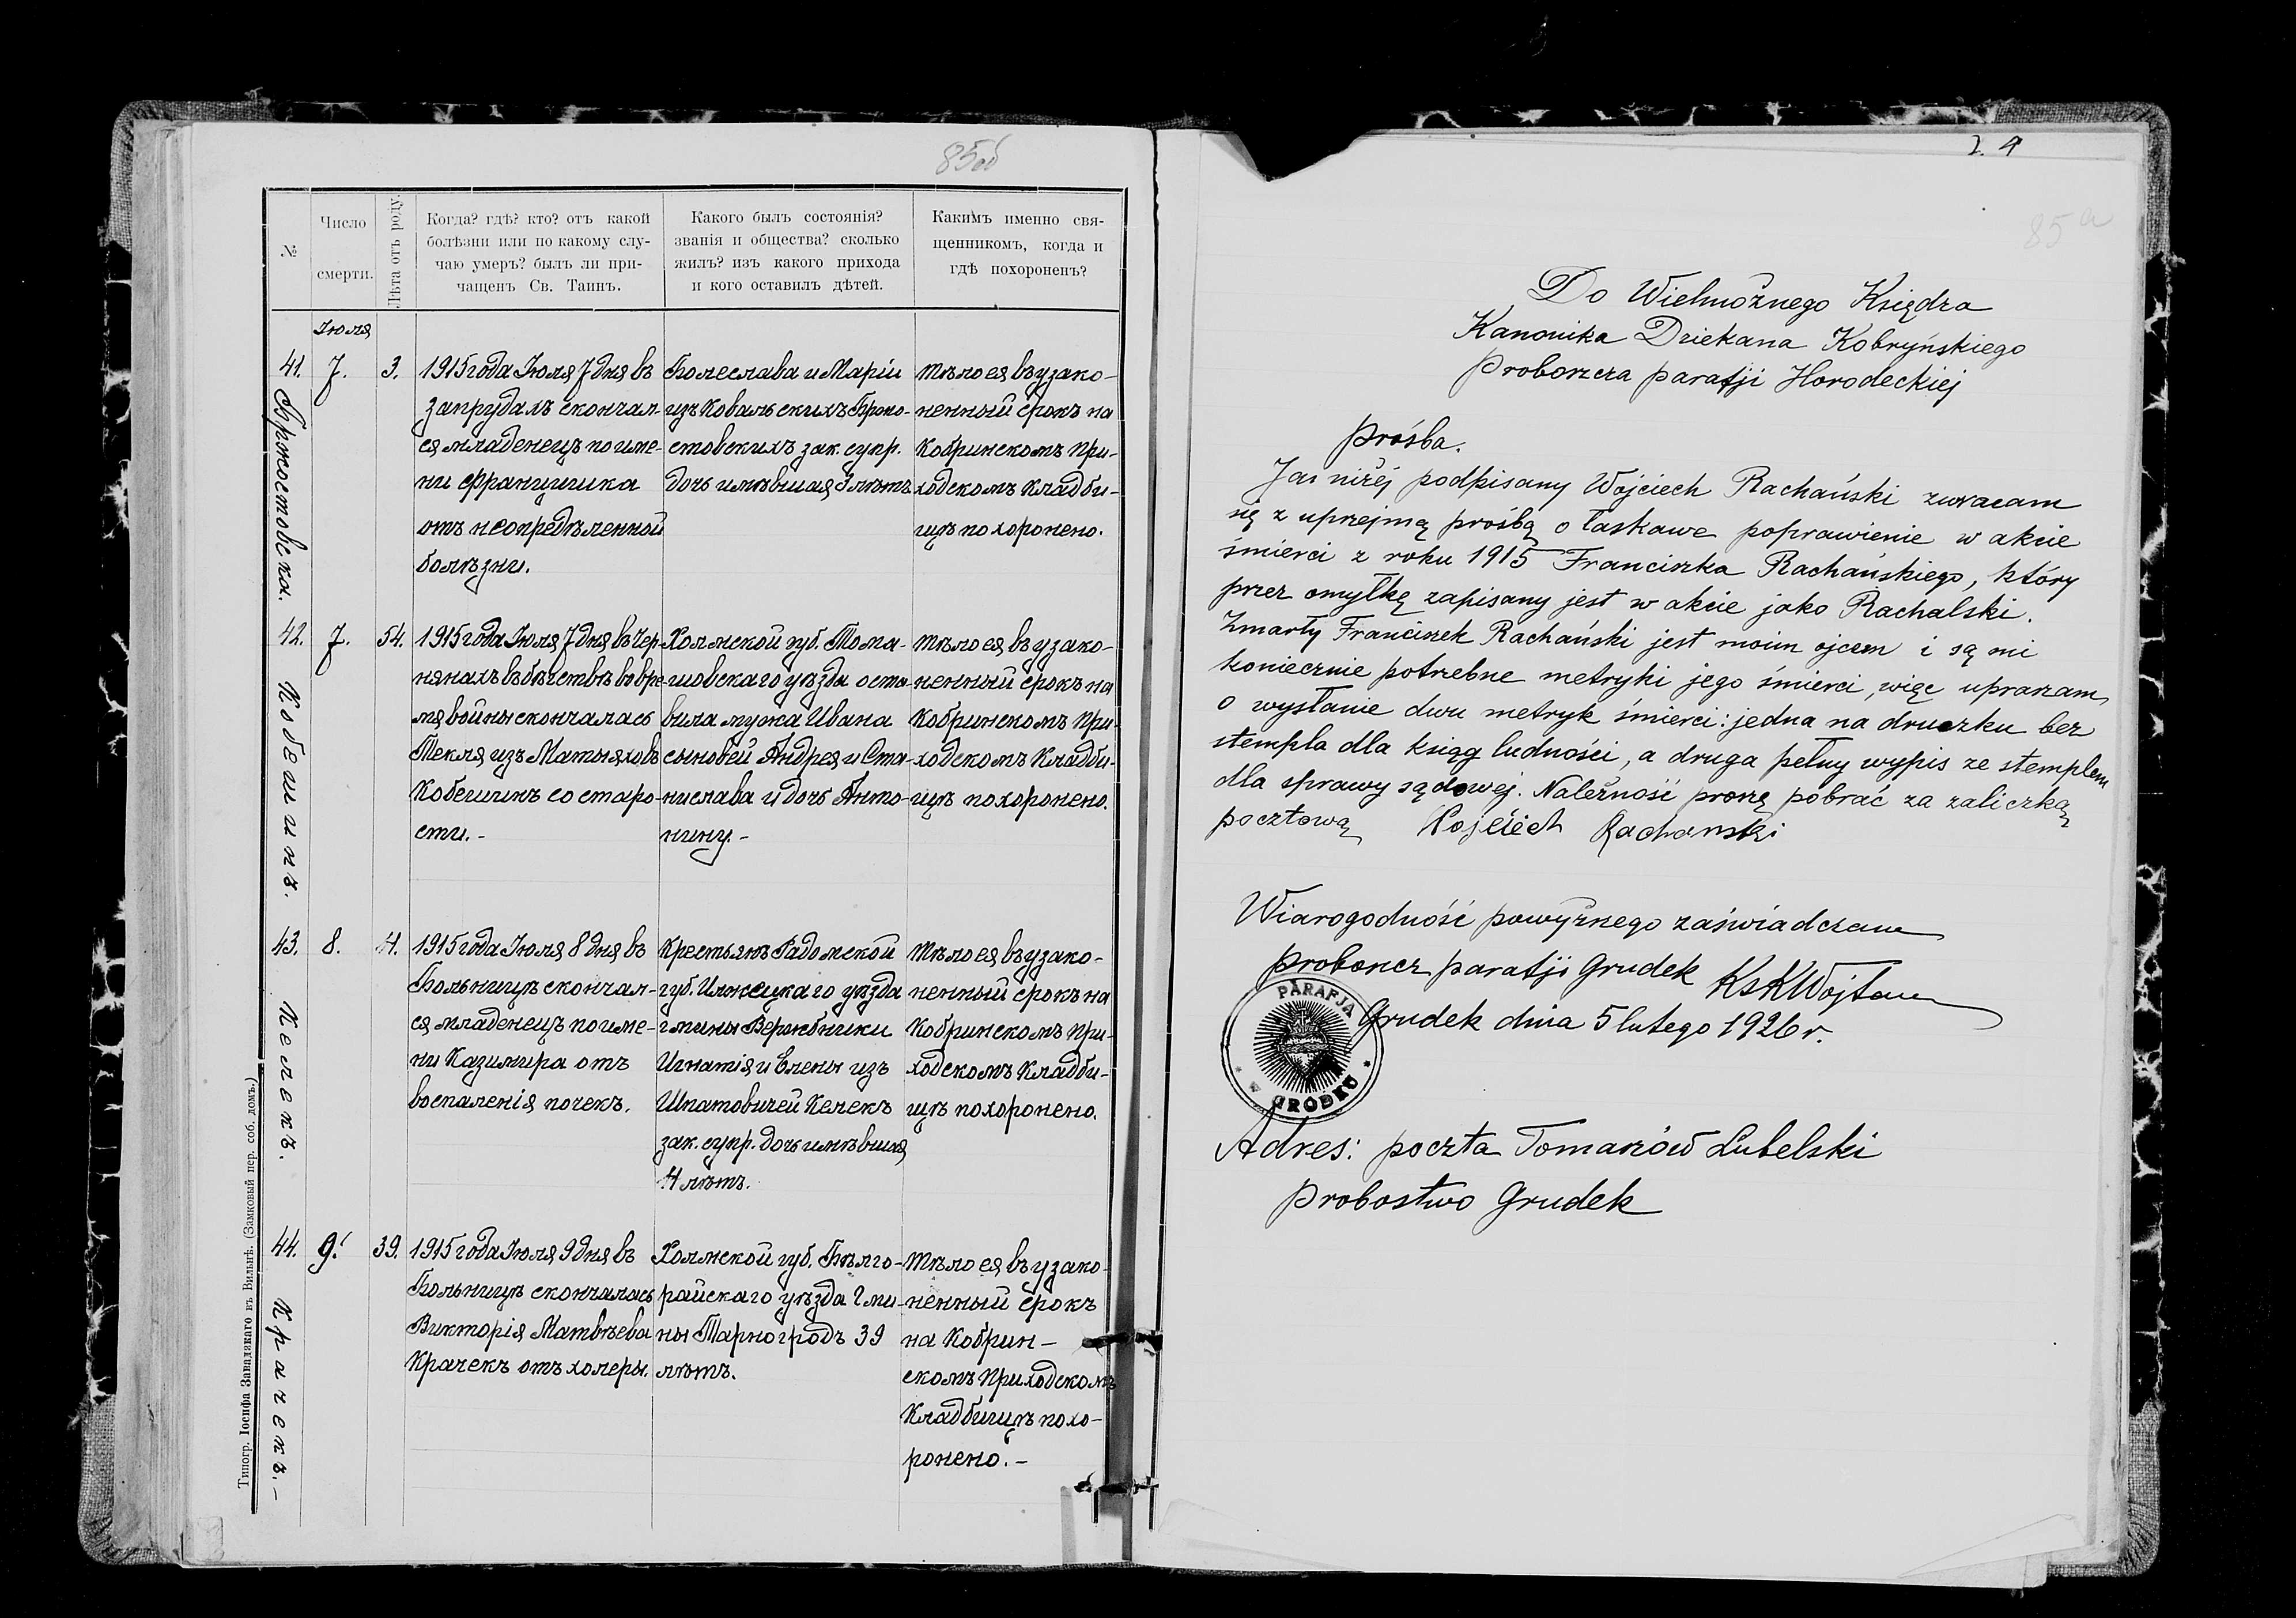 85об
№
Число
смерти.
Лѣта отъ роду.
Когда? гдѣ? кто? отъ какой
болѣзни или по какому слу-
чаю умеръ? былъ ли при-
чащенъ Св. Таинъ.
Какого былъ состоянія?
званія и общества? сколько
жилъ? изъ какого прихода
и кого оставилъ дѣтей.
Какимъ именно свя-
щенникомъ, когда и
гдѣ похороненъ?
Июля
41.
Бржостовска.
7.
3.
1915 года Июля 7 дня въ
Запрудахъ скончал-
ся младенецъ по име-
ни Францишка
отъ неопредѣленной
болѣзни.
Болеслава и Маріи
изъ Ковальскихъ Бржо-
стовскихъ зак. супр.
дочь имѣвшая 3 лѣтъ
Тѣло ея въ узако-
ненный срокъ на
Кобринскомъ При-
ходскомъ Кладби-
щѣ похоронено.
42.
Кобешинъ.
7.
54.
1915 года Июля 7 дня въ Чер-
нянахъ въ бѣгствѣ во вре
мя войны скончалась
Текля изъ Матыяховъ
Кобешинъ со старо-
сти.-
Холмской губ. Тома-
шовскаго уѣзда оста-
вила мужа Ивана
сыновей Андрея и Ста-
нислава и дочь Анто-
нину.-
Тѣло ея въ узако-
ненный срокъ на
Кобринскомъ При-
ходскомъ Кладби-
щѣ похоронено.
43.
Келекъ.
8.
4.
1915 года Июля 8 дня въ
Больницѣ скончал-
ся младенецъ по име-
ни Казимира отъ
воспаленія почекъ.
Крестьянъ Радомской
губ. Илжецкаго уѣзда
гмины Вержбники
Игнатія и Елены изъ
Шпатовичей Келекъ
зак. супр. дочь имѣвшая
4 лѣтъ.
Тѣло ея въ узако-
ненный срокъ на
Кобринскомъ При-
ходскомъ Кладби-
щѣ похоронено.
44.
Крачекъ.-
9.
39.
1915 года Июля 9 дня въ
Больницѣ скончалась
Викторія Матвѣева
Крачекъ отъ холеры.
Холмской губ. Бѣлго-
райскаго уѣзда Гми-
ны Тарногродъ 39
лѣтъ.
Тѣло ея въ узако-
ненный срокъ
на Кобрин-
скомъ Приходскомъ
Кладбищѣ похо-
ронено.-
Типогр. Іосифа Завадзкаго въ Вильнѣ. (Замковый пер. соб. домъ.)
85а
Do Wielmożnego Księdza
Kanonika Dziekana Kobryńskiego
Proboszcza parafji Horodeckiej
Prośba.
Ja niżej podpisany Wojciech Rachański zwracam
się z uprzejmą prośbą o łaskawe poprawienie w akcie
śmierci z roku 1915 Franciszka Rachańskiego, który
przez omyłkę zapisany jest w akcie jako Rachalski.
Zmarły Franciszek Rachański jest moim ojcem i są mi
koniecznie potrzebne metryki jego śmierci, więc upraszam
o wysłanie dwu metryk śmierci: jedna na druczku bez
stempla dla ksiąg ludności, a druga pełny wypis ze stemplem
dla sprawy sądowej. Należność proszę pobrać za zaliczką
pocztową Wojciech Rachanski
Wiarogodność powyższnego zaświadczam
proboszcz parafji Grudek Ks K Wojtow
Grudek dnia 5 lutego 1926 r.
PARAFJA
w GRÓDKU
Adres: poczta Tomaszów Lubelski
Probostwo Grudek